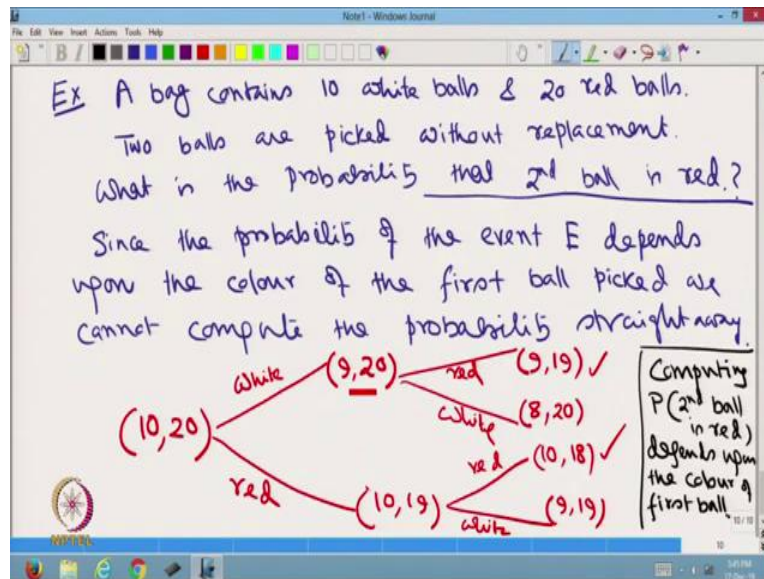 Note1 - Windows Journal
File Edit View Insert Actions Tools Help
Ex A bag contains 10 white balls & 20 red balls.
Two balls are picked without replacement.
What is the probability that 2nd ball is red.?
Since the probability of the event E depends
upon the colour of the first ball picked we
cannot compute the probability straightaway.
white (9,20) red (9,19) ✓
white (8,20)
(10,20)
red (10,19) red (10,18) ✓
white (9,19)
Computing
P(2nd ball
is red)
depends upon
the colour of
first ball.
NPTEL
10 / 10
10